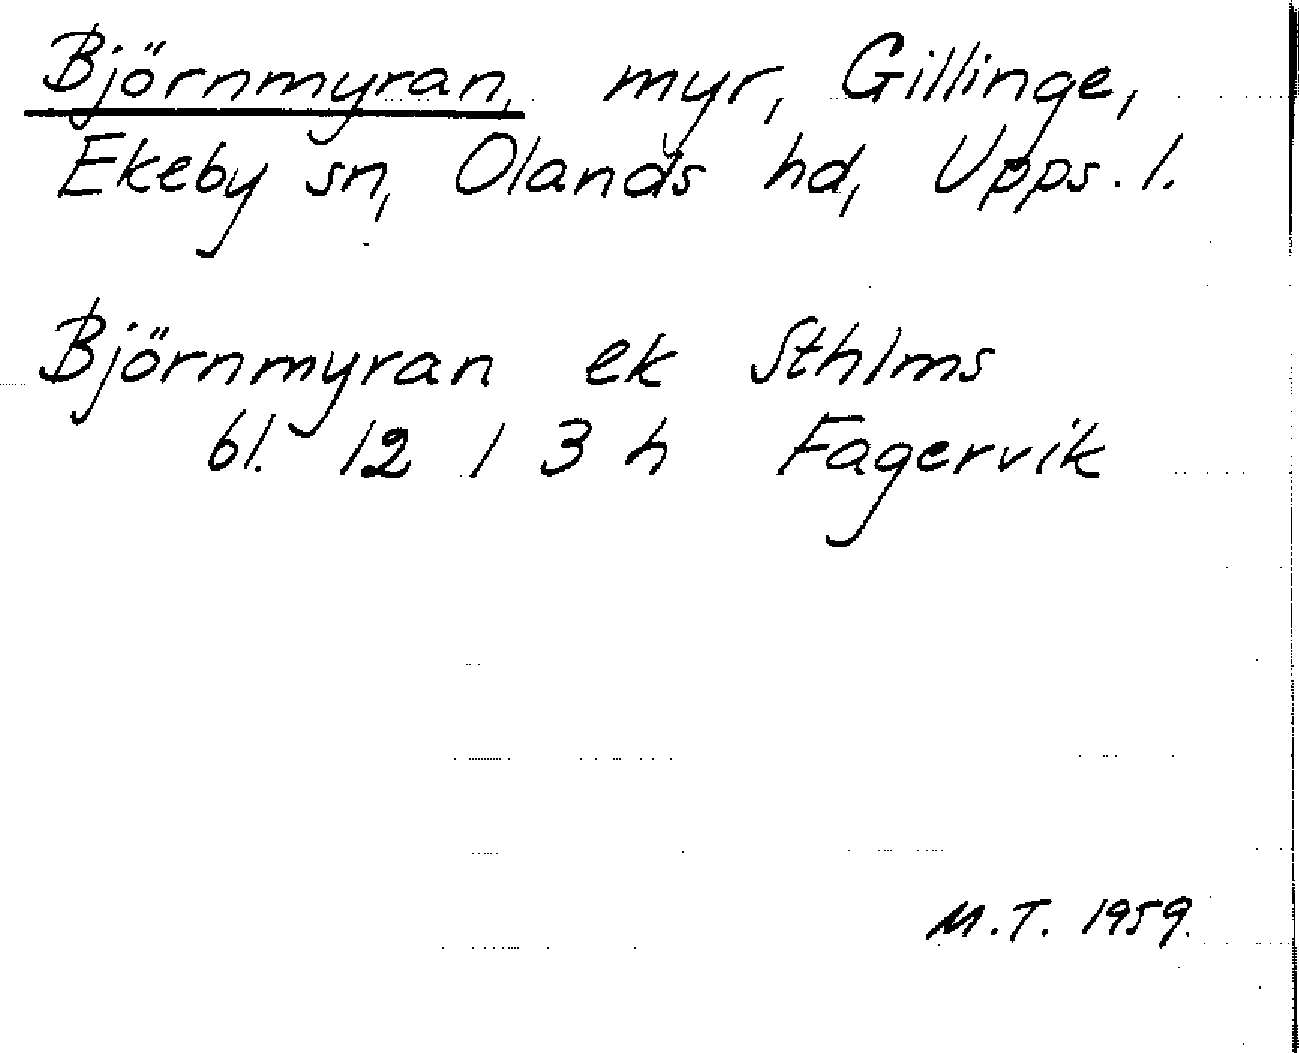 Björnmyran, myr, Gillinge,
Ekeby sn, Olands hd, Upps. l.
Björnmyran ek Sthlms
bl. 12 I 3 h Fagervik
M.T. 1959.